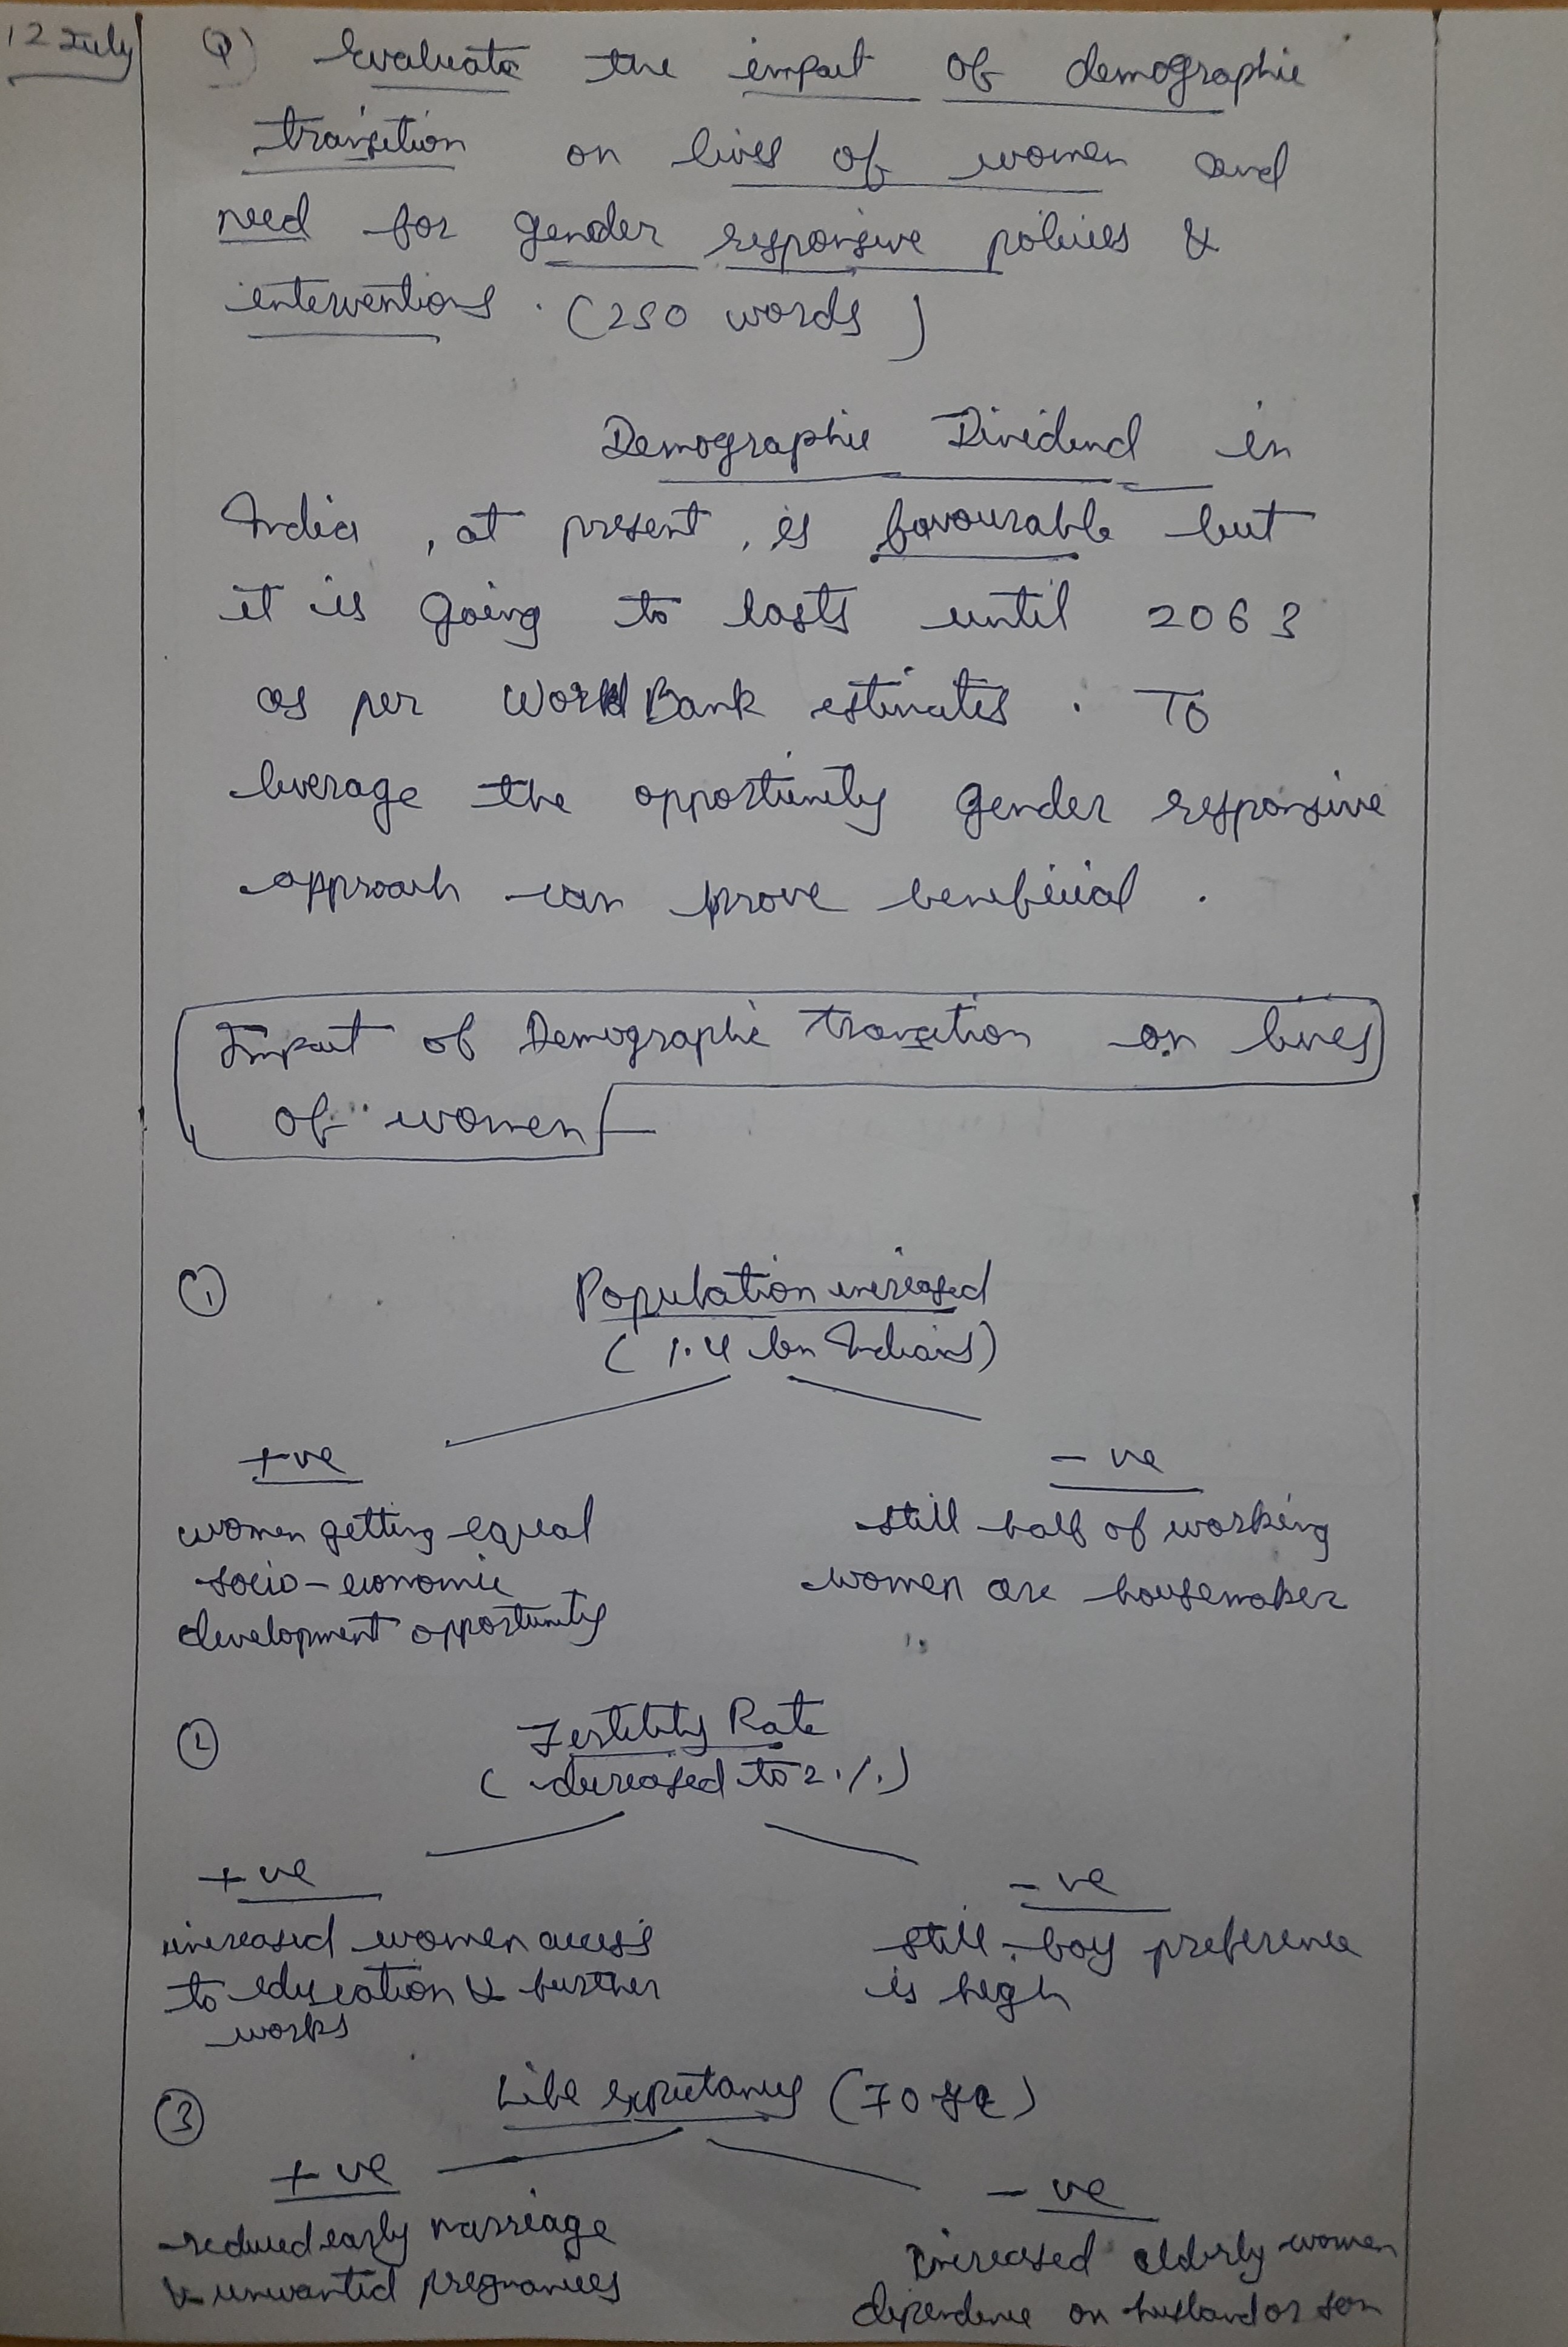 12 July
Q) Evaluate the impact of demographic
transition on lives of women and
need for gender responsive policies &
interventions. (250 words)
Demographic Dividend in
India, at present, is favourable but
it is going to lasts until 2063
as per World Bank estimates. To
leverage the opportunity gender responsive
approach can prove beneficial.
Impact of Demographic transition on lives
of women
① Population increased
(1.4 bn Indians)
+ve
women getting equal
socio-economic
development opportunity
-ve
still half of working
women are housemaker
② Fertility Rate
(decreased to 2.1.)
+ve
increased women access
to education & further
works
-ve
still boy preference
is high
③ Life expectancy (70 yr)
+ve
reduced early marriage
& unwanted pregnancies
-ve
increased elderly women
dependence on husband or son